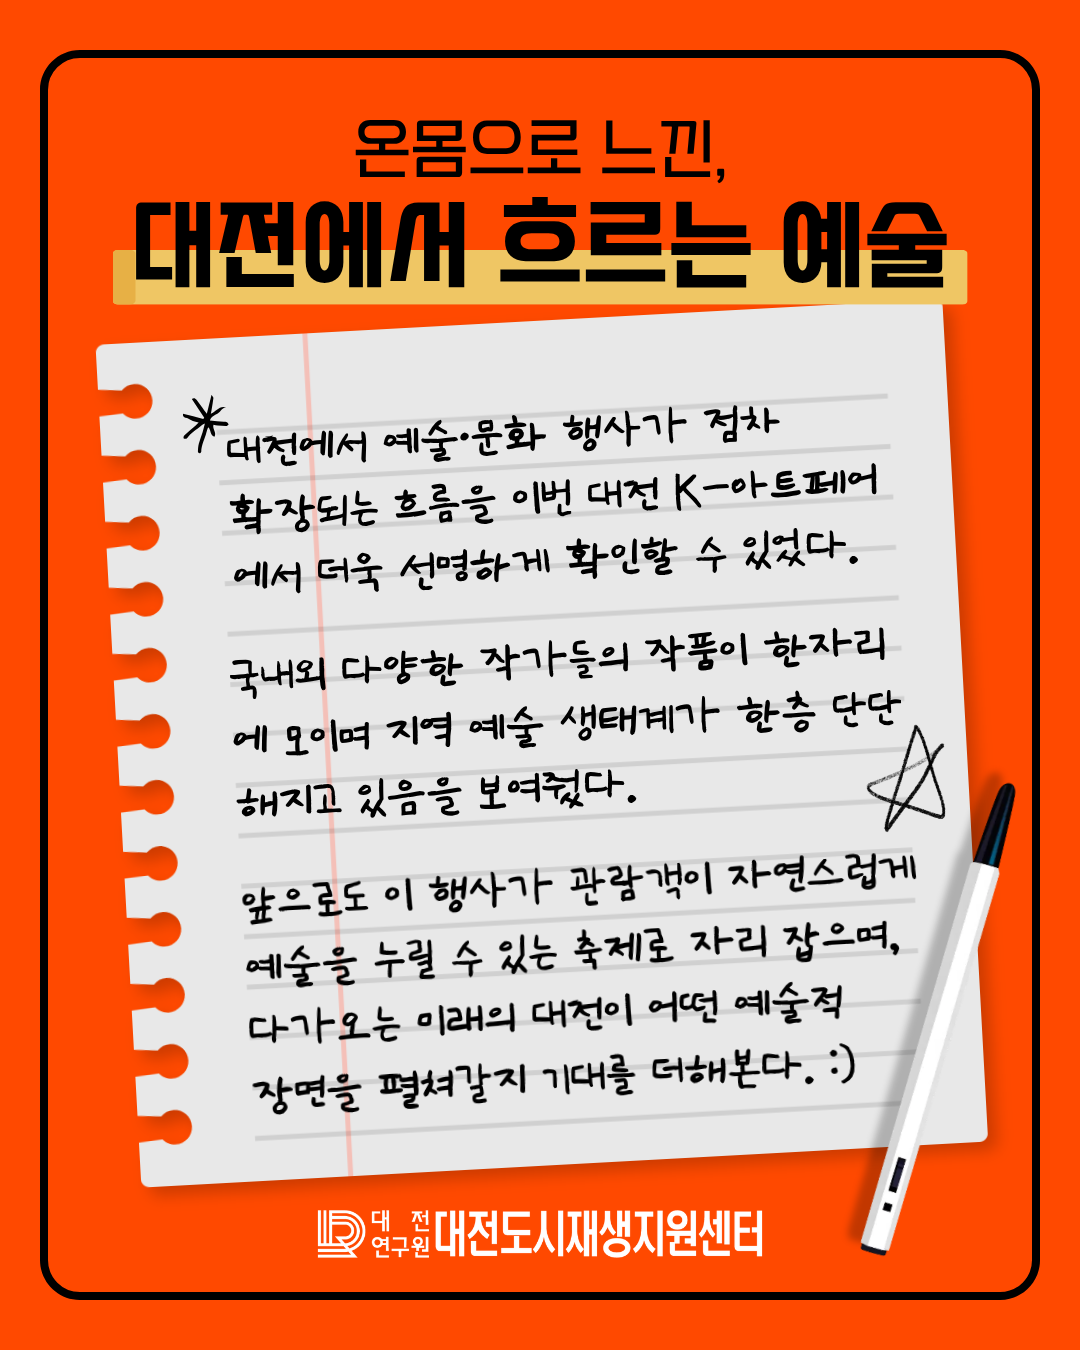 온몸으로 느낀,
대전에서 흐르는 예술
대전에서 예술·문화 행사가 점차
확장되는 흐름을 이번 대전 K-아트페어
에서 더욱 선명하게 확인할 수 있었다.
국내외 다양한 작가들의 작품이 한자리
에 모이며 지역 예술 생태계가 한층 단단
해지고 있음을 보여줬다.
앞으로도 이 행사가 관람객이 자연스럽게
예술을 누릴 수 있는 축제로 자리 잡으며,
다가오는 미래의 대전이 어떤 예술적
장면을 펼쳐갈지 기대를 더해본다. :)
대전연구원 대전도시재생지원센터